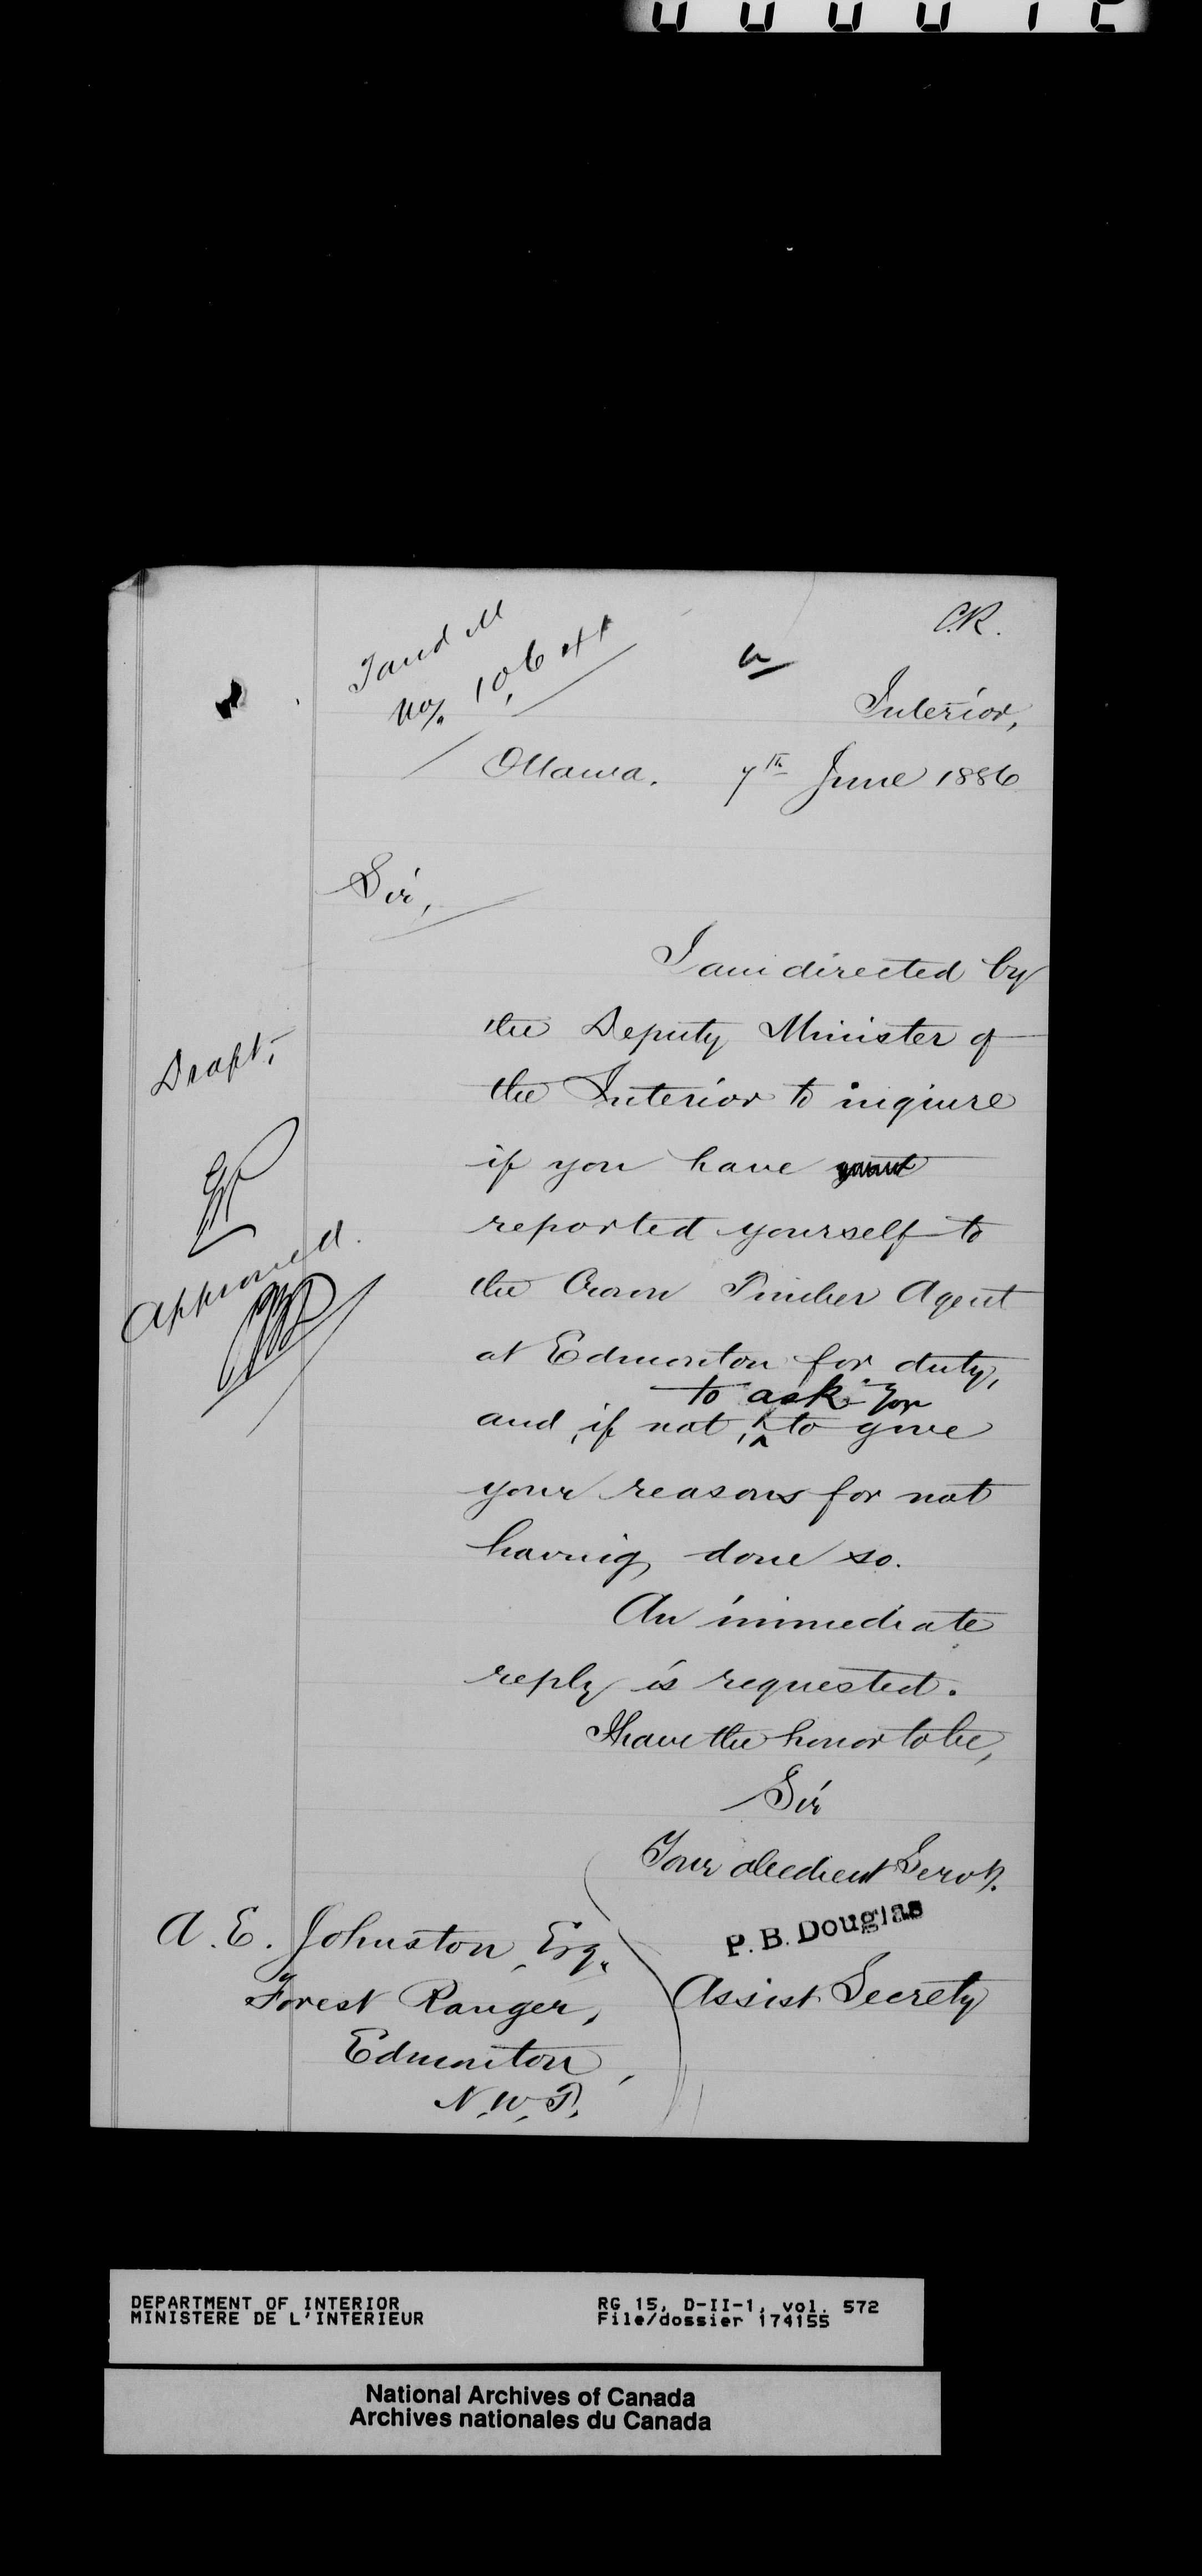 C.R.
T and M
No. 10,644
Interior,
Ottawa. 7th June 1886
Sir,
I am directed by
the Deputy Minister of
the Interior to inquire
if you have
reported yourself to
the Crown Timber Agent
at Edmonton for duty,
to ask you
and, if not, to give
your reasons for not
having done so.
An immediate
reply is requested.
I have the honor to be,
Sir
Your obedient Servt.
P. B. Douglas
Assist. Secrety
Draft.
Approved.
A. E. Johnston, Esq.
Forest Ranger,
Edmonton,
N.W.T.
DEPARTMENT OF INTERIOR
MINISTERE DE L'INTERIEUR
RG 15, D-II-1, vol. 572
File/dossier 174155
National Archives of Canada
Archives nationales du Canada